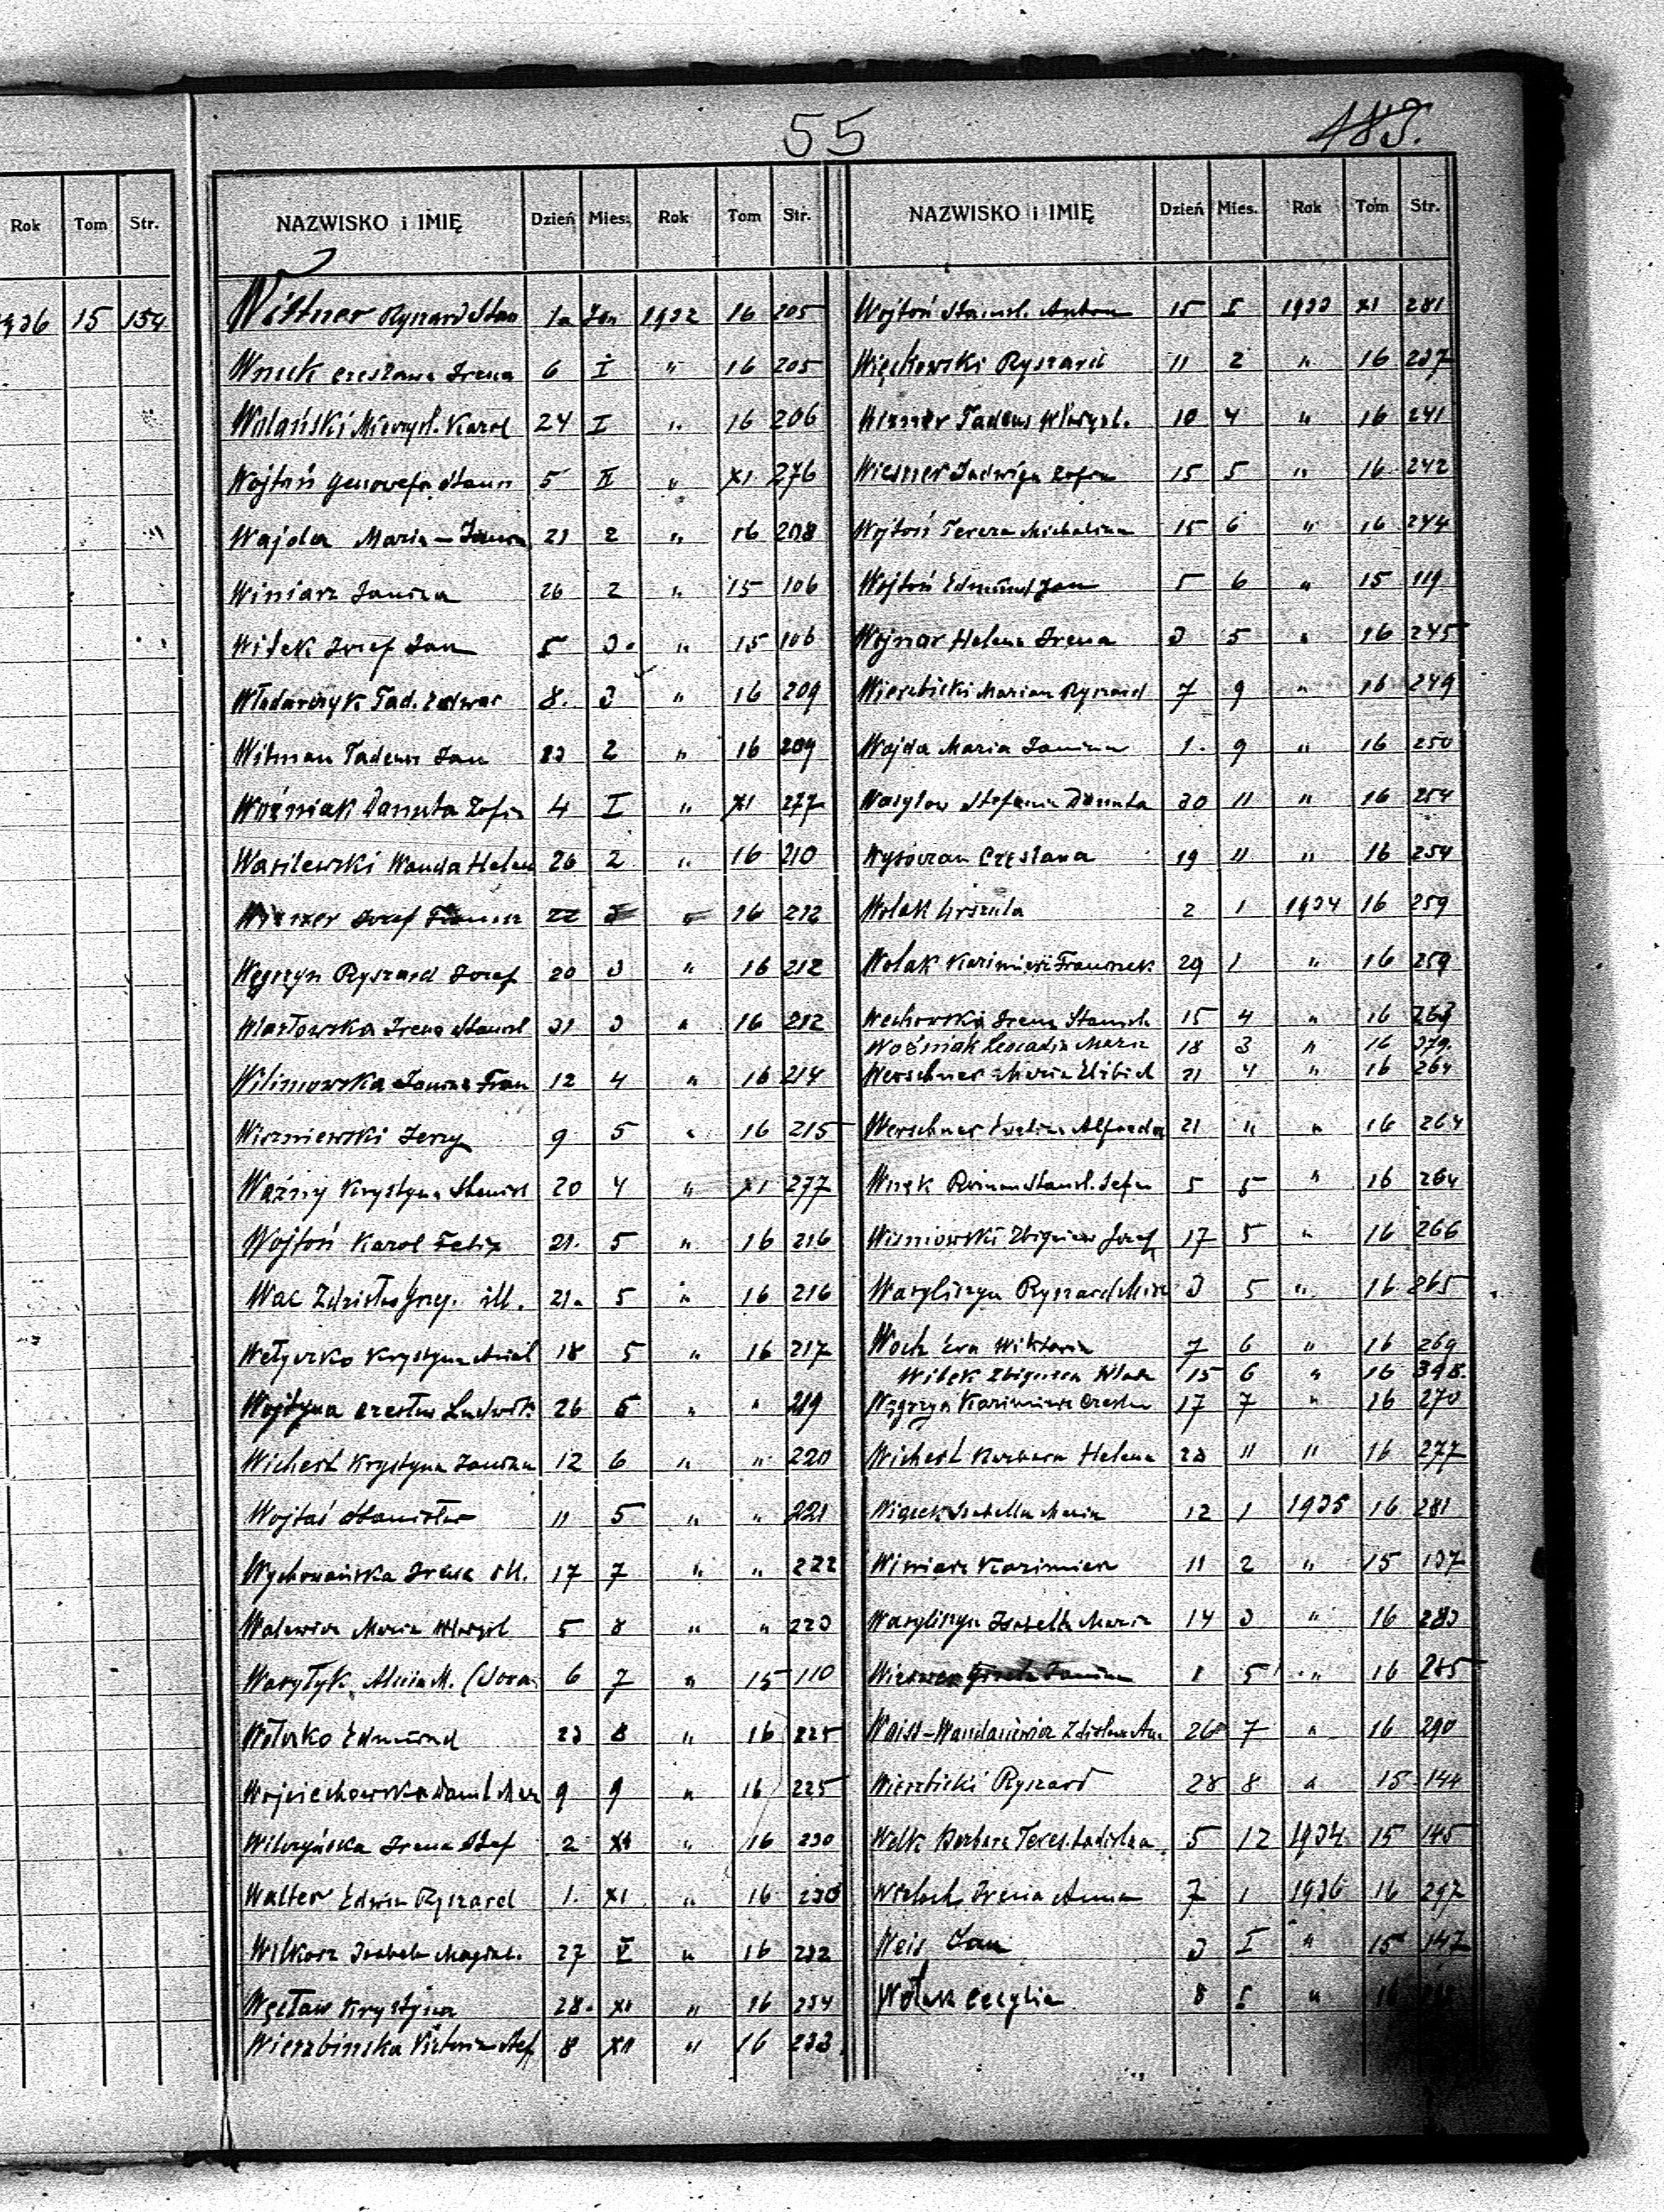 55
183.
Rok Tom Str.
1936 15 154
NAZWISKO i IMIĘ Dzień Mies. Rok Tom Str.
Wittner Ryszard Stan 1a Jan 1932 16 205
Wnuk Czesława Irena 6 I " 16 205
Wolański Mieczysł. Karol 24 I " 16 206
Wojtoń Genowefa Stan 5 II " XI 276
Wajda Maria-Janina 21 2 " 16 208
Winiarz Janina 26 2 " 15 106
Witek Józef Jan 5 3. " 15 106
Włodarczyk Tad. Edwar 8. 3 " 16 209
Witman Tadeusz Jan 23 2 " 16 209
Woźniak Danuta Zofia 4 I " XI 277
Wasilewski Wanda Helen 26 2 " 16 210
Józef 22 3 " 16 212
Węgrzyn Ryszard Józef 20 3 " 16 212
Irena Stanisł 31 3 " 16 212
Wilimowska Janina Fran 12 4 " 16 214
Wiszniewski Jerzy 9 5 " 16 215
Ważny Krystyna Stanisł 20 4 " XI 277
Wojtoń Karol Felix 21. 5 " 16 216
Wac Zdzisław Grzeg. ill. 21. 5 " 16 216
Wełyczko Krystyna 18 5 " 16 217
Wojtyna Czesław Ludwik 26 5 " " 219
Wichert Krystyna Janina 12 6 " " 220
Wojtaś Stanisław 11 5 " " 221
Wychowańska Irena M. 17 7 " " 222
Maria 5 8 " " 223
Wasyłyk 6 7 " 15 110
Wołoszko Edmund 23 8 " 16 225
Wojciechowska Danut Mar 9 9 " 16 225
Wilczyńska Irena Stef 2 XI " 16 230
Walter Edwin Ryszard 1. XI " 16 230
Wilkosz Izabela Magdal. 27 V " 16 232
Węcław Krystyna 28. XI " 16 234
Wierzbińska Wiktoria Stef 8 XII " 16 233
NAZWISKO i IMIĘ Dzień Mies. Rok Tom Str.
Wojtoń Stanisł. Antoni 15 I 1933 XI 281
Więckowski Ryszard 11 2 " 16 237
Tadeusz Władysł. 10 4 " 16 241
Wiesner Jadwiga Zofia 15 5 " 16 242
Wojtoń Teresa Michalina 15 6 " 16 244
Wojtoń Edmund Jan 5 6 " 15 119
Wojnar Helena Irena 3 5 " 16 245
Wierzbicki Marian Ryszard 7 9 " 16 249
Wojda Maria Janina 1. 9 " 16 250
Wasylow Stefania Danuta 30 11 " 16 254
Wysoczan Czesława 19 11 " 16 254
Wolak Urszula 2 1 1934 16 259
Wolak Kazimierz Franciszek 29 1 " 16 259
Wechowska Irena Stanisła 15 4 " 16 263
Woźniak Leocadia Maria 18 3 " 16 379.
Werschner Maria Elżbieta 21 4 " 16 264
Werschner Ewelina Alfreda 21 " " 16 264
Wnęk Roman Stanisł. 5 5 " 16 264
Wiśniowski Zbigniew Józef 17 5 " 16 266
Wasyliszyn Ryszard 3 5 " 16 265
Woch Ewa Wiktoria 7 6 " 16 269
Witek Zbigniew Wład 15 6 " 16 398.
Węgrzyn Kazimierz Czesław 17 7 " 16 270
Wichert Barbara Helena 23 11 " 16 277
Wiącek Izabella Maria 12 1 1935 16 281
Winiarz Kazimierz 11 2 " 15 137
Wasyliszyn Izabella Maria 14 3 " 16 283
Wiesner Janina 1 5 " 16 285
Waiss-Wandasiewicz Zdzisław 26 7 " 16 290
Wierzbicki Ryszard 28 8 " 15 144
Wilk Barbara Teres. Ladisłaa 5 12 1934 15 145
Irena Anna 7 1 1936 16 297
Weis Jan 3 I " 15 147
Cecylia 8 I " 16